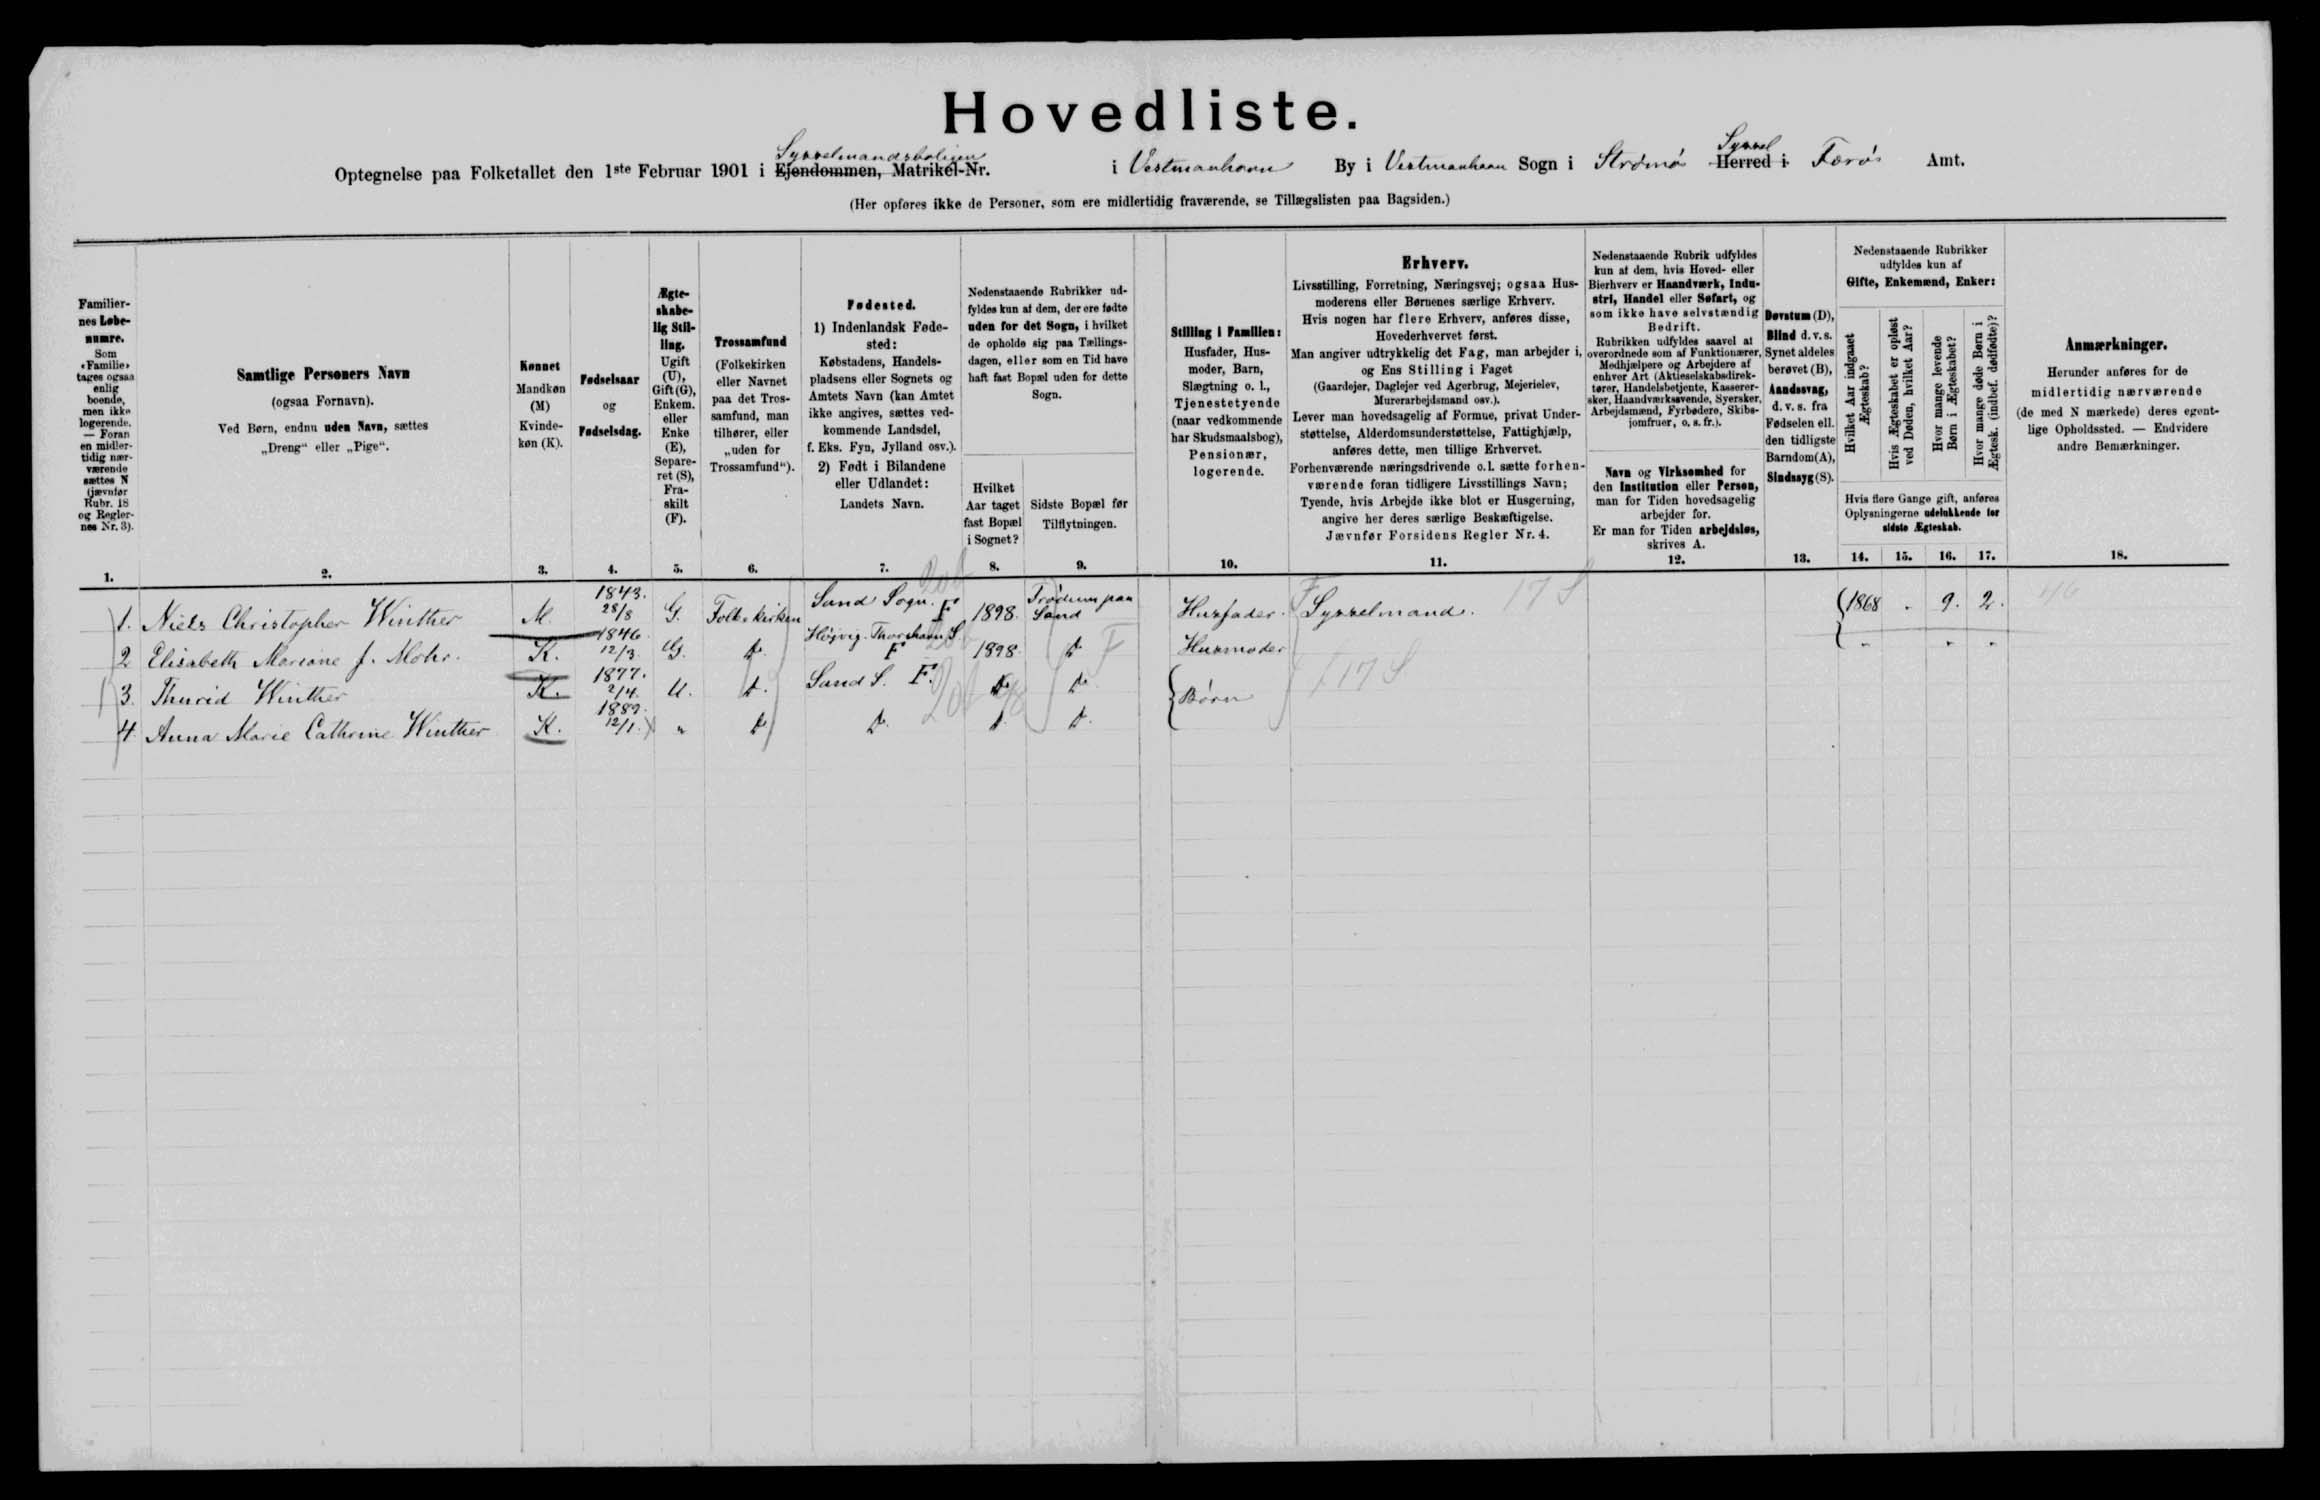 Hovedliste.
Sysselmandsboligen
Syssel
Optegnelse paa Folketallet den 1ste Februar 1901 i Ejendommen, Matrikel-Nr. i Vestmanhavn By i Vestmanhavn Sogn i Strømø Herred i Færø Amt.
(Her opføres ikke de Personer, som ere midlertidig fraværende, se Tillægslisten paa Bagsiden.)
Familier-
nes Løbe-
numre.
Som
«Familie»
tages ogsaa
enlig
boende,
men ikke
logerende.
— Foran
en midler-
tidig nær-
værende
sættes N
(jævnfør
Rubr. 18
og Regler-
nes Nr. 3).
1.
Samtlige Personers Navn
(ogsaa Fornavn).
Ved Børn, endnu uden Navn, sættes
„Dreng“ eller „Pige“.
2.
Kønnet
Mandkøn
(M)
Kvinde-
køn (K).
3.
Fødselsaar
og
Fødselsdag.
4.
Ægte-
skabe-
lig Stil-
ling.
Ugift
(U),
Gift (G),
Enkem.
eller
Enke
(E),
Separe-
ret (S),
Fra-
skilt
(F).
5.
Trossamfund
(Folkekirken
eller Navnet
paa det Tros-
samfund, man
tilhører, eller
„uden for
Trossamfund“).
6.
Fødested.
1) Indenlandsk Føde-
sted:
Købstadens, Handels-
pladsens eller Sognets og
Amtets Navn (kan Amtet
ikke angives, sættes ved-
kommende Landsdel,
f. Eks. Fyn, Jylland osv.).
2) Født i Bilandene
eller Udlandet:
Landets Navn.
7.
Nedenstaaende Rubrikker ud-
fyldes kun af dem, der ere fødte
uden for det Sogn, i hvilket
de opholde sig paa Tællings-
dagen, eller som en Tid have
haft fast Bopæl uden for dette
Sogn.
Hvilket
Aar taget
fast Bopæl
i Sognet?
8.
Sidste Bopæl før
Tilflytningen.
9.
Stilling i Familien:
Husfader, Hus-
moder, Barn,
Slægtning o. l.,
Tjenestetyende
(naar vedkommende
har Skudsmaalsbog),
Pensionær,
logerende.
10.
Erhverv.
Livsstilling, Forretning, Næringsvej; ogsaa Hus-
moderens eller Børnenes særlige Erhverv.
Hvis nogen har flere Erhverv, anføres disse,
Hovederhvervet først.
Man angiver udtrykkelig det Fag, man arbejder i,
og Ens Stilling i Faget
(Gaardejer, Daglejer ved Agerbrug, Mejerielev,
Murerarbejdsmand osv.).
Lever man hovedsagelig af Formue, privat Under-
støttelse, Alderdomsunderstøttelse, Fattighjælp,
anføres dette, men tillige Erhvervet.
Forhenværende næringsdrivende o. l. sætte forhen-
værende foran tidligere Livsstillings Navn;
Tyende, hvis Arbejde ikke blot er Husgerning,
angive her deres særlige Beskæftigelse.
Jævnfør Forsidens Regler Nr. 4.
11.
Nedenstaaende Rubrik udfyldes
kun af dem, hvis Hoved- eller
Bierhverv er Haandværk, Indu-
stri, Handel eller Søfart, og
som ikke have selvstændig
Bedrift.
Rubrikken udfyldes saavel af
overordnede som af Funktionærer,
Medhjælpere og Arbejdere af
enhver Art (Aktieselskabsdirek-
tører, Handelsbetjente, Kasserer-
sker, Haandværkssvende, Syersker,
Arbejdsmænd, Fyrbødere, Skibs-
jomfruer, o. s. fr.).
Navn og Virksomhed for
den Institution eller Person,
man for Tiden hovedsagelig
arbejder for.
Er man for Tiden arbejdsløs,
skrives A.
12.
Døvstum (D),
Blind d. v. s.
Synet aldeles
berøvet (B),
Aandssvag,
d. v. s. fra
Fødselen ell.
den tidligste
Barndom (A),
Sindssyg (S).
13.
Nedenstaaende Rubrikker
udfyldes kun af
Gifte, Enkemænd, Enker:
Hvilket Aar indgaaet
Ægteskab?
Hvis Ægteskabet er opløst
ved Døden, hvilket Aar?
Hvor mange levende
Børn i Ægteskabet?
Hvor mange døde Børn i
Ægtesk. (indbef. dødfødte)?
Hvis flere Gange gift, anføres
Oplysningerne udelukkende for
sidste Ægteskab.
14. 15. 16. 17.
Anmærkninger.
Herunder anføres for de
midlertidig nærværende
(de med N mærkede) deres egent-
lige Opholdssted. — Endvidere
andre Bemærkninger.
18.
1. Niels Christopher Winther M. 1843. 28/8 G. Folkekirken Sand Sogn. F 1898. Trødum paa Sand Husfader. Sysselmand. 1868 " 9. 2.
2 Elisabeth Mariane f. Mohr. K. 1846. 12/3. G. do. Højvig. Thorshavn S. F 1898. do Husmoder " " "
3. Thurid Winther K. 1877. 2/4. U. do. Sand S. F. do do Børn
4. Anna Marie Cathrine Winther K. 1889. 12/1. " do do. do. do.
17 S
F 17 S